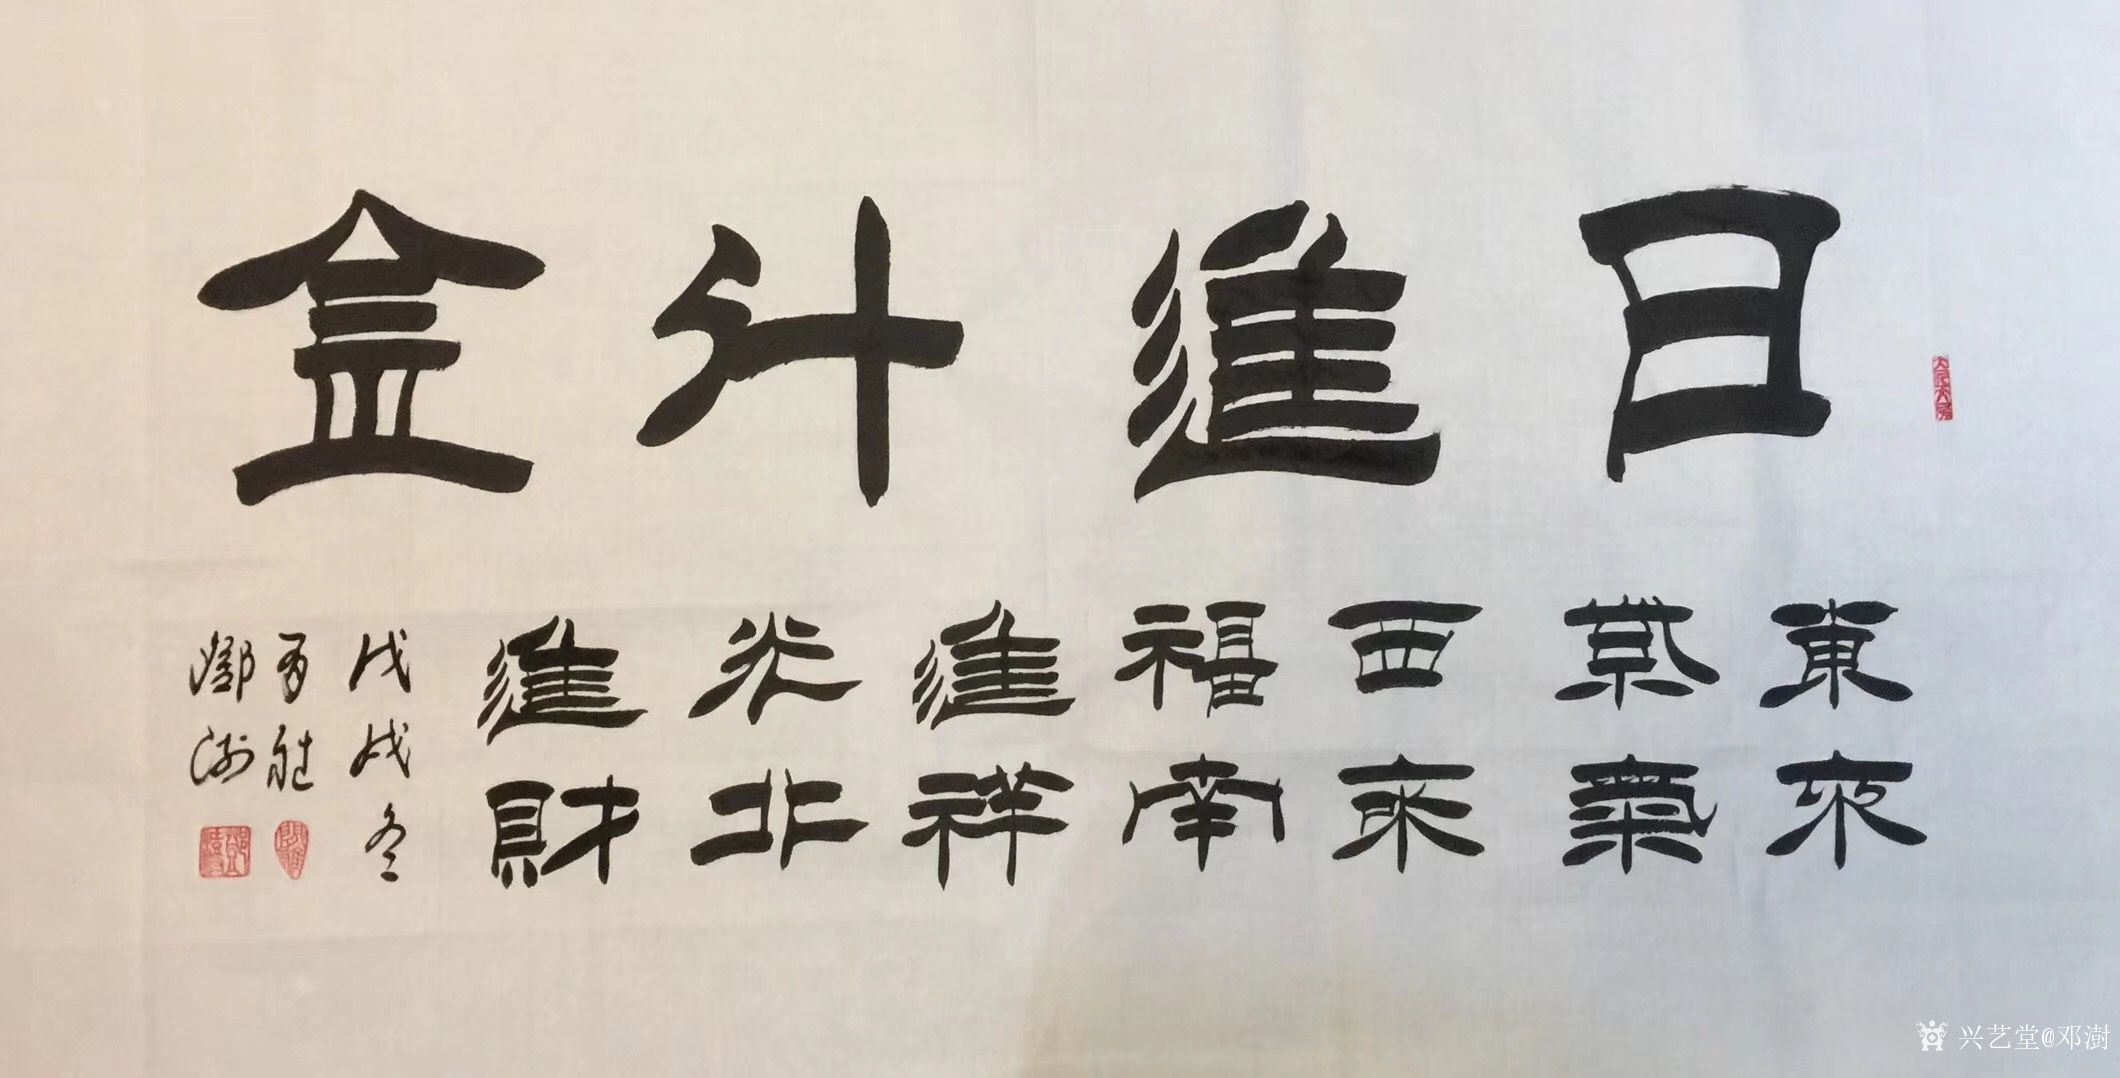 日進斗金
東來
紫氣
西來
福南
進祥
光北
進財
戊戌冬
鄧澍
兴艺堂@邓澍